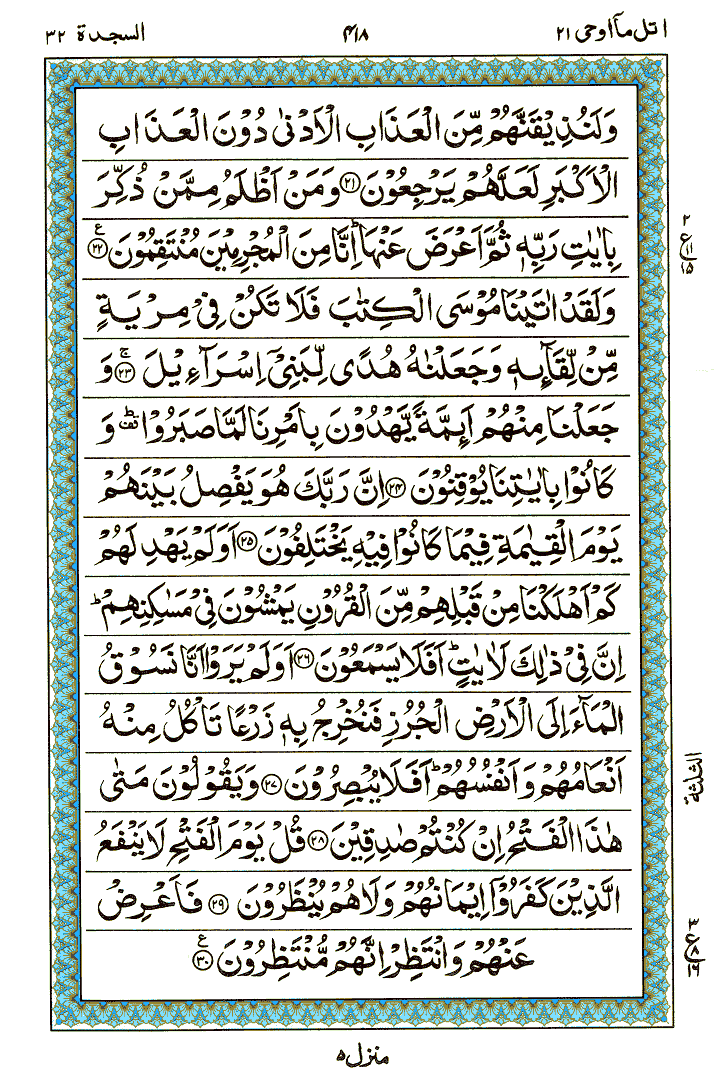 اتل مآ اوحی ۲۱
۴۱۸
السجدة ۳۲
وَلَنُذِيْقَنَّهُمْ مِّنَ الْعَذَابِ الْاَدْنٰى دُوْنَ الْعَذَابِ
الْاَكْبَرِ لَعَلَّهُمْ يَرْجِعُوْنَ ﴿۲۱﴾ وَمَنْ اَظْلَمُ مِمَّنْ ذُكِّرَ
بِاٰيٰتِ رَبِّهٖ ثُمَّ اَعْرَضَ عَنْهَا ؕ اِنَّا مِنَ الْمُجْرِمِيْنَ مُنْتَقِمُوْنَ ﴿۲۲﴾ ع
۲
ع ۱۱
۱۵
وَلَقَدْ اٰتَيْنَا مُوْسَى الْكِتٰبَ فَلَا تَكُنْ فِيْ مِرْيَةٍ
مِّنْ لِّقَآئِهٖ وَجَعَلْنٰهُ هُدًى لِّبَنِيْٓ اِسْرَآءِيْلَ ﴿۲۳﴾ ج وَ
جَعَلْنَا مِنْهُمْ اَئِمَّةً يَّهْدُوْنَ بِاَمْرِنَا لَمَّا صَبَرُوْا ؕ وَ
كَانُوْا بِاٰيٰتِنَا يُوْقِنُوْنَ ﴿۲۴﴾ اِنَّ رَبَّكَ هُوَ يَفْصِلُ بَيْنَهُمْ
يَوْمَ الْقِيٰمَةِ فِيْمَا كَانُوْا فِيْهِ يَخْتَلِفُوْنَ ﴿۲۵﴾ اَوَلَمْ يَهْدِ لَهُمْ
كَمْ اَهْلَكْنَا مِنْ قَبْلِهِمْ مِّنَ الْقُرُوْنِ يَمْشُوْنَ فِيْ مَسٰكِنِهِمْ ؕ
اِنَّ فِيْ ذٰلِكَ لَاٰيٰتٍ ؕ اَفَلَا يَسْمَعُوْنَ ﴿۲۶﴾ اَوَلَمْ يَرَوْا اَنَّا نَسُوْقُ
الْمَآءَ اِلَى الْاَرْضِ الْجُرُزِ فَنُخْرِجُ بِهٖ زَرْعًا تَاْكُلُ مِنْهُ
اَنْعَامُهُمْ وَاَنْفُسُهُمْ ؕ اَفَلَا يُبْصِرُوْنَ ﴿۲۷﴾ وَيَقُوْلُوْنَ مَتٰى
الثلٰثة
هٰذَا الْفَتْحُ اِنْ كُنْتُمْ صٰدِقِيْنَ ﴿۲۸﴾ قُلْ يَوْمَ الْفَتْحِ لَا يَنْفَعُ
الَّذِيْنَ كَفَرُوْٓا اِيْمَانُهُمْ وَلَا هُمْ يُنْظَرُوْنَ ﴿۲۹﴾ فَاَعْرِضْ
عَنْهُمْ وَانْتَظِرْ اِنَّهُمْ مُّنْتَظِرُوْنَ ﴿۳۰﴾ ع
۳
ع ۸
۱۶
منزل ۵